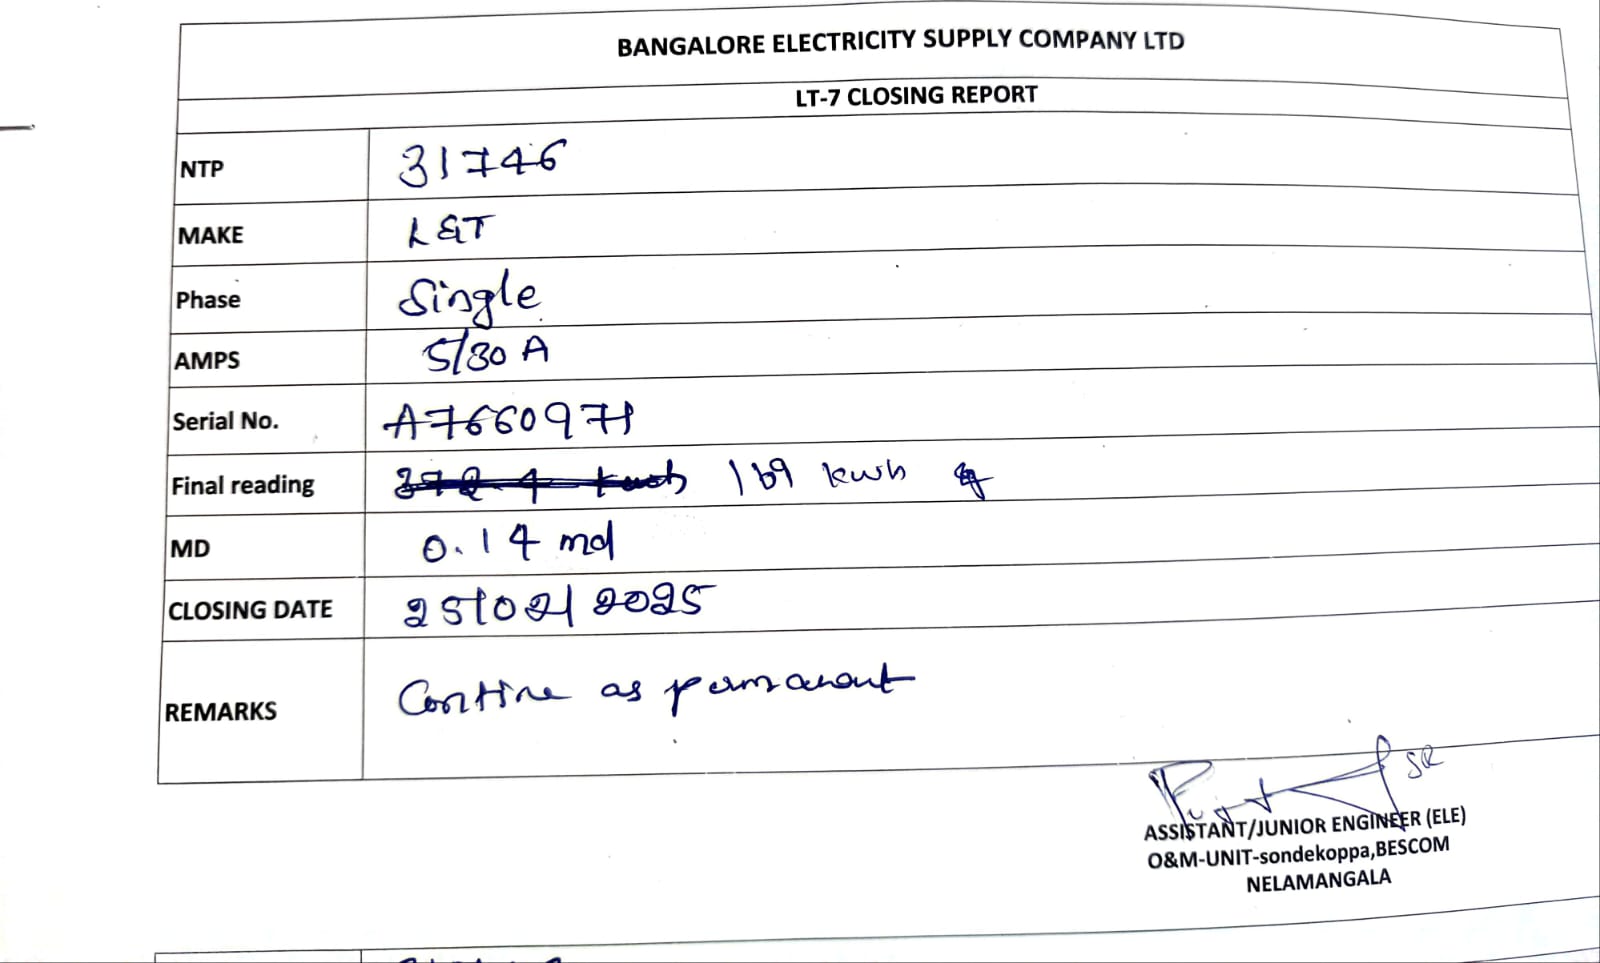 BANGALORE ELECTRICITY SUPPLY COMPANY LTD
LT-7 CLOSING REPORT
NTP 31746
MAKE L&T
Phase Single
AMPS 5/30 A
Serial No. A7660971
Final reading 372.4 kwh 169 kwh
MD 0.14 md
CLOSING DATE 25/02/2025
REMARKS Contine as permanent
SR
ASSISTANT/JUNIOR ENGINEER (ELE)
O&M-UNIT-sondekoppa,BESCOM
NELAMANGALA